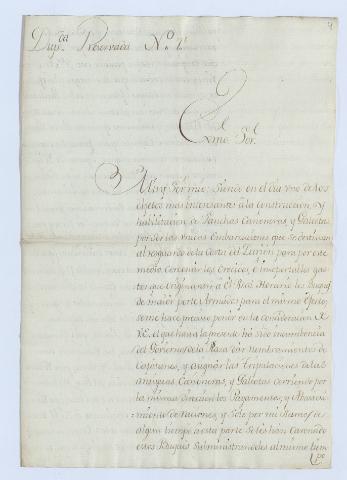 4
Dup.da Reservada N.o 1.
Exmo Sor.
Muy Sor mio: Siendo en el dia uno de los
objetos mas interesantes á la construccion, y
habilitacion de Lanchas Cañoneras, y Galeotas
por ser los unicos Embarcaciones que se destinan
al resguardo de la Costa del Darien para por este
medio cortar los crecidos, é insoportables gas-
tos que originavan á el Real Herario los Buques
de maior porte Armados para el mismo efecto;
se me hace preciso poner en la consideracion de
V.E. el que hasta la presente há sido incumbencia
del Govierno de la Plaza dar nombramientos de
Capitanes, y asignar las tripulaciones de las
Cañoneras, y Galeotas corriendo por
la misma direccion los Pagamentos, y Abaste-
cimiento de Raciones, y solo por mi Ramo de
algun tiempo á esta parte se les han Carenado
estos Buques subministrandoles al mismo tiem-
po